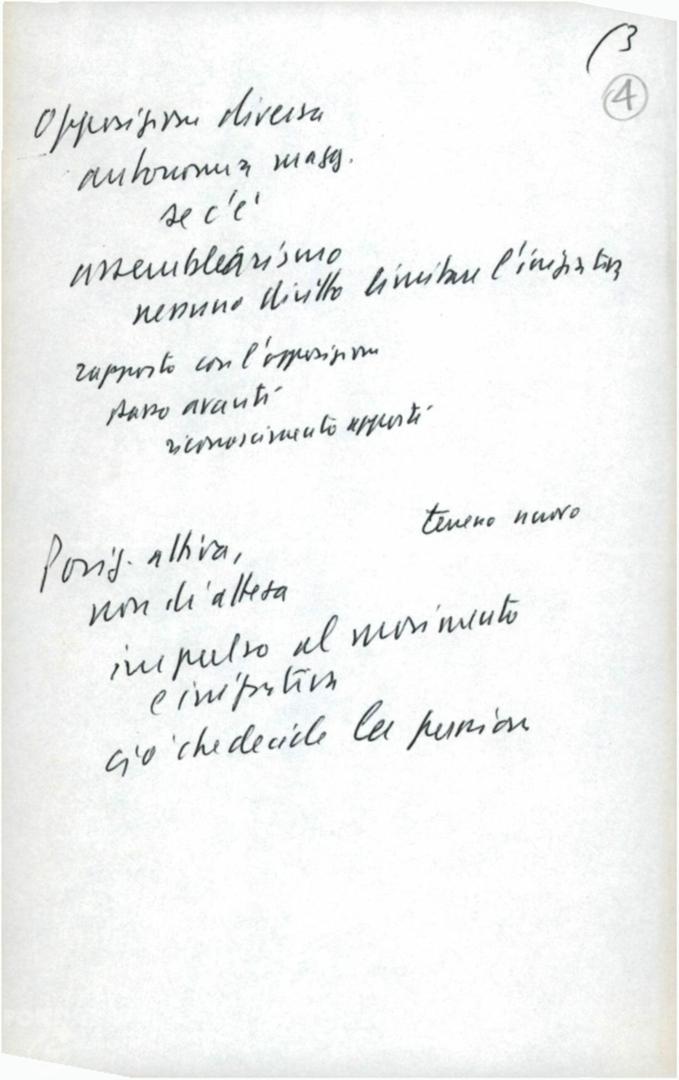 (3
4
Opposizione diversa
autonomia magg.
se c'è
assemblearismo
nessuno diritto limitare l'iniziativa
rapporto con l'opposizione
passo avanti
riconoscimento apporti
terreno nuovo
Posiz. attiva,
non di attesa
impulso al movimento
e iniziativa
ciò che decide la pressione